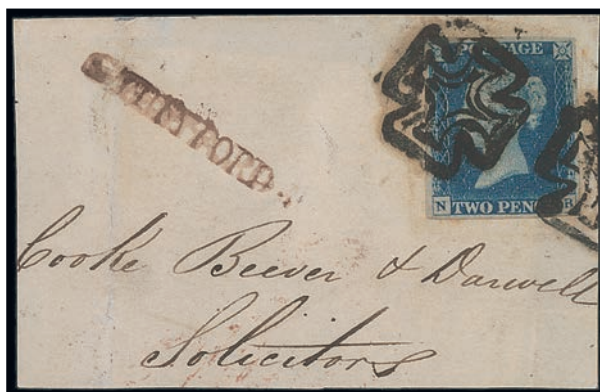 POSTAGE
N TWO PEN B
Cooke Beever & Darwell
Solicitors